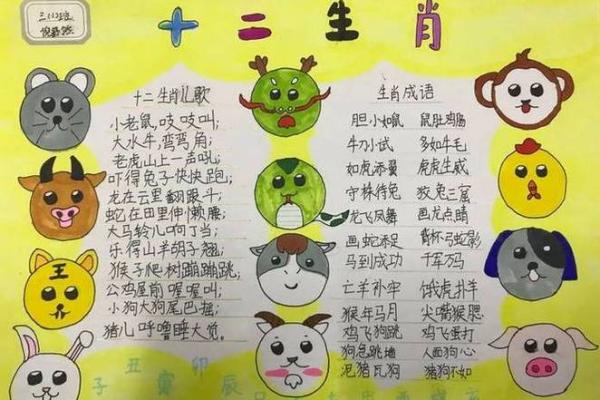 三(2)班
十二生肖
十二生肖儿歌
小老鼠,吱吱叫;
大水牛,弯弯角;
老虎山上一声吼;
吓得兔子快快跑;
龙在云里翻跟斗;
蛇在田里伸懒腰;
大马铃儿响叮当;
乐得山羊胡子翘;
猴子爬树蹦蹦跳;
公鸡屋前喔喔叫;
小狗大狗尾巴摇;
猪儿呼噜睡大觉。
生肖成语
胆小如鼠 鼠肚鸡肠
牛刀小试 多如牛毛
如虎添翼 虎虎生威
守株待兔 狡兔三窟
龙飞凤舞 画龙点睛
画蛇添足 背杯弓蛇影
马到成功 千军万马
亡羊补牢 饿虎扑羊
猴年马月 尖嘴猴腮
鸡飞狗跳 鸡飞蛋打
狗急跳墙 人面狗心
泥猪瓦狗 猪狗不如
王
子丑寅卯辰